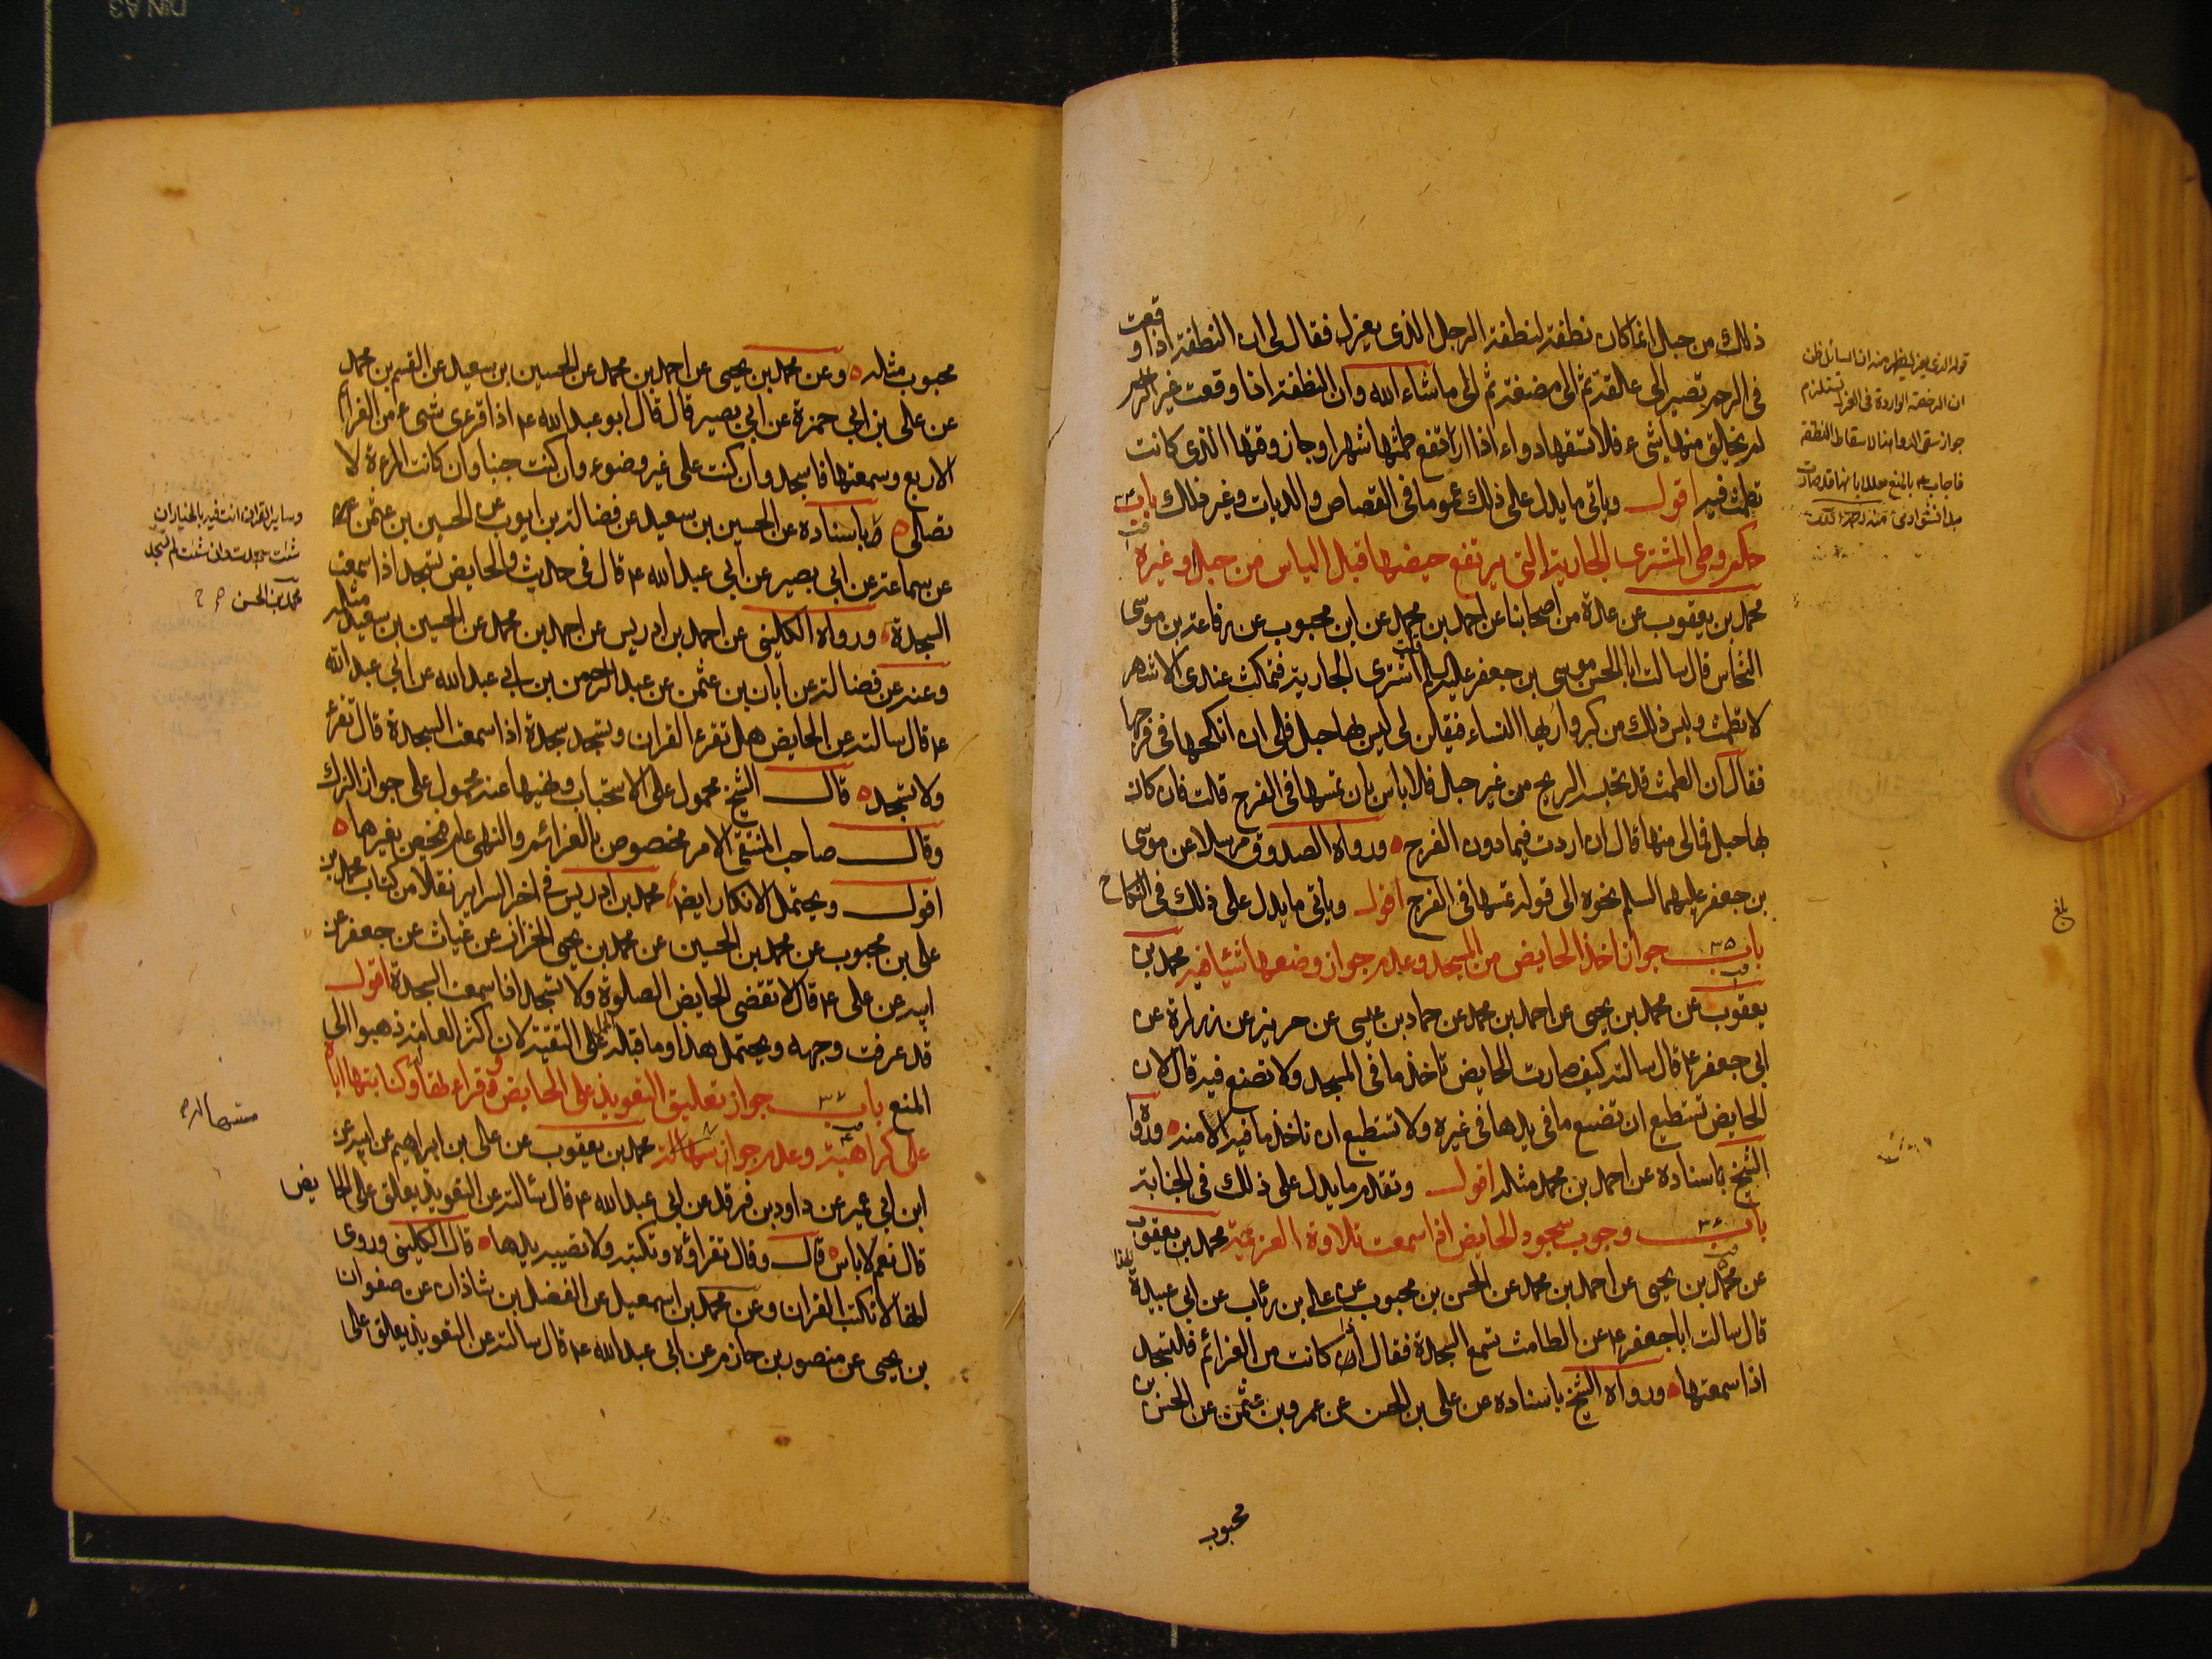 ذلك من حبل انما كان نطفة لنطفة الرجل الذى يعزل فقال لى ان النطفة اذا وقعت
فى الرحم تصير الى علقة ثم الى مضغة ثم الى ما شاء الله وان النطفة اذا وقعت غير الرحم
لم يخلق منها شىء فلا تسقها دواء اذا ارتفع طمثها شهرا وجاز وقتها الذى كانت
تطمث فيه اقول وياتى ما يدل على ذلك عموما فى القصاص والديات وغير ذلك باب
حكم وطى المشترى الجارية التى يرتفع حيضها قبل الياس من حبل او غيره
محمد بن يعقوب عن عدة من اصحابنا عن احمد بن محمد عن ابن محبوب عن رفاعة بن موسى
النخاس قال سالت ابا الحسن موسى بن جعفر عليه السلم قلت اشترى الجارية فتمكث عندى الاشهر
لا تطمث وليس ذلك من كبر واريها النساء فيقلن لى ليس بها حبل فلى ان انكحها فى فرجها
فقال ان الطمث قد تحبسه الريح من غير حبل فلا باس بان تمسها فى الفرج قلت فان كان
بها حبل فمالى منها قال ان اردت فيما دون الفرج ورواه الصدوق مرسلا عن موسى
بن جعفر عليهما السلم نحوه الى قوله تمسها فى الفرج اقول وياتى ما يدل على ذلك فى النكاح
باب ٣٥ جواز اخذ الحايض من المسجد وعدم جواز وضعها شيئا فيه محمد بن
يعقوب عن محمد بن يحيى عن احمد بن محمد عن حماد بن عيسى عن حريز عن زرارة عن
ابى جعفر ع قال سالته كيف صارت الحايض تاخذ ما فى المسجد ولا تضع فيه قال لان
الحايض تستطيع ان تضع ما فى يدها فى غيره ولا تستطيع ان تاخذ ما فيه الا منه ورواه
الشيخ باسناده عن احمد بن محمد مثله اقول وتقدم ما يدل على ذلك فى الجنابة
باب ٣٦ وجوب سجود الحايض اذا سمعت تلاوة العزيمة محمد بن يعقوب
عن محمد بن يحيى عن احمد بن محمد عن الحسن بن محبوب عن على بن رئاب عن ابى عبيدة الحذا
قال سالت ابا جعفر ع عن الطامث تسمع السجدة فقال ان كانت من العزائم فلتسجد
اذا سمعتها ورواه الشيخ باسناده عن على بن الحسن عن عمرو بن عثمن عن الحسن بن
محبوب
قوله الذى يعزل يظهر منه ان السائل ظن
ان الرخصة الواردة فى العزل تستلزم
جواز سقى الدوا هنا لاسقاط النطفة
فاجاب ع بالمنع معللا بانها قد صارت
بلغ
محبوب مثله وعن محمد بن يحيى عن احمد بن محمد عن الحسين بن سعيد عن القسم بن محمد
عن على بن ابى حمزة عن ابى بصير قال قال ابو عبد الله ع اذا قرىء شىء من العزائم
الاربع وسمعتها فاسجد وان كنت على غير وضوء وان كنت جنبا وان كانت المرءة لا
تصلى باسناده عن الحسين بن سعيد عن فضالة بن ايوب عن الحسين بن عثمن
عن سماعة عن ابى بصير عن ابى عبد الله ع قال فى حديث والحايض تسجد اذا سمعت
السجدة ورواه الكلينى عن احمد بن ادريس عن احمد بن محمد عن الحسين بن سعيد مثله
وعنه عن فضالة عن ابان بن عثمن عن عبد الرحمن بن ابى عبد الله عن ابى عبد الله
ع قال سالته عن الحايض هل تقرء القران وتسجد سجدة اذا سمعت السجدة قال تقرء
ولا تسجد قال الشيخ محمول على الاستحباب ونهيها عنه محمول على جواز الترك
وقال صاحب المنتقى الامر مخصوص بالعزائم والنهى عام فيخص بغيرها
اقول ويحتمل الانكار ايضا محمد بن ادريس فى اخر السراير نقلا من كتاب محمد بن
على بن محبوب عن محمد بن الحسين عن محمد بن يحيى الخزاز عن غياث عن جعفر عن
ابيه عن على ع قال لا تقضى الحايض الصلوة ولا تسجد اذا سمعت السجدة اقول
قد عرفت وجهه ويحتمل هذا وما قبله الحمل على التقية لان اكثر العامة ذهبوا الى
المنع باب ٣٧ جواز تعليق التعويذ على الحايض وقراءتها له وكتابتها اياه
على كراهية وعدم جواز مسها له محمد بن يعقوب عن على بن ابراهيم عن ابيه عن
ابن ابى عمير عن داود بن فرقد عن ابى عبد الله ع قال سئالته عن التعويذ يعلق على الحايض
قال نعم لا باس قال وقال تقراؤه وتكتبه ولا تصيبه يدها قال الكلينى وروى
انها لا تكتب القران وعن محمد بن اسمعيل عن الفضل بن شاذان عن صفوان
بن يحيى عن منصور بن حازم عن ابى عبد الله ع قال سالته عن التعويذ يعلق على
وساير القران انت فيه بالخيار ان
شئت سجدت وان شئت لم تسجد
محمد بن الحسن صح